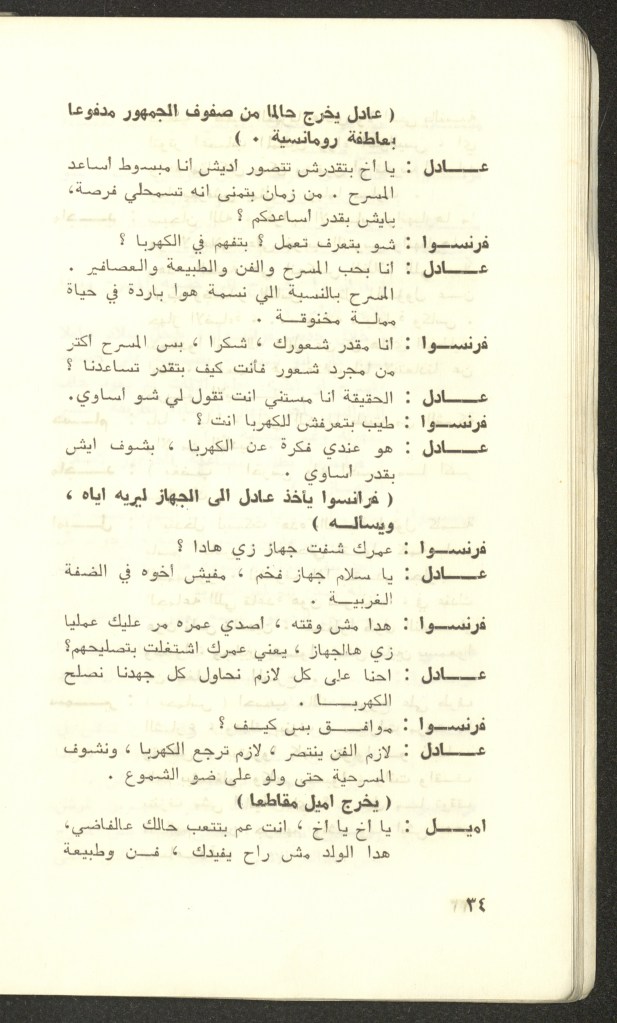 ( عادل يخرج حالما من صفوف الجمهور مدفوعا
بعاطفة رومانسية . )
عـــادل : يا اخ بتقدرش تتصور اديش انا مبسوط اساعد
المسرح . من زمان بتمنى انه تسمحلي فرصة،
بايش بقدر أساعدكم ؟
فرنســوا : شو بتعرف تعمل ؟ بتفهم في الكهربا ؟
عـــادل : أنا بحب المسرح والفن والطبيعة والعصافير .
المسرح بالنسبة الي نسمة هوا باردة في حياة
مملـة مخنوقـة . .
فرنســوا : أنا مقدر شعورك ، شكرا ، بس المسرح اكتر
من مجرد شعور فأنت كيف بتقدر تساعدنا ؟
عـــادل : الحقيقة انا مستني انت تقول لي شو أساوي.
فرنســوا : طيب بتعرفش للكهربا انت ؟
عـــادل : هو عندي فكرة عن الكهربا ، بشوف ايش
بقدر أساوي .
( فرانسوا يأخذ عادل الى الجهاز ليريه اياه ،
ويسألـه )
فرنســوا : عمرك شفت جهاز زي هادا ؟
عـــادل : يا سلام جهاز فخم ، مفيش اخوه في الضفة
الغربيـة .
فرنســوا : هدا مش وقته ، اصدي عمره مر عليك عمليا
زي هالجهاز ، يعني عمرك اشتغلت بتصليحهم؟
عـــادل : احنا على كل لازم نحاول كل جهدنا نصلح
الكهربـــا .
فرنســوا : موافــق بس كيــف ؟
عـــادل : لازم الفن ينتصر ، لازم ترجع الكهربا ، ونشوف
المسرحية حتى ولو على ضو الشموع .
( يخرج اميل مقاطعا )
اميــل : يا اخ يا اخ ، انت عم بتتعب حالك عالفاضي،
هدا الولد مش راح يفيدك ، فـن وطبيعة
٣٤